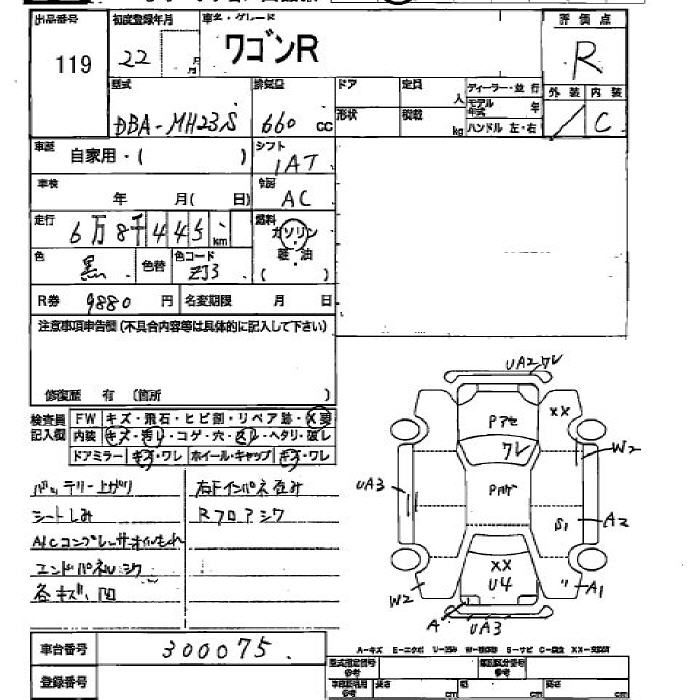 出品番号 初度登録年月 車名・グレード 評価点
119 22 年 月 ワゴンR R
型式 排気量 ドア 定員 人 ディーラー・並行 外装 内装
DBA-MH23S 660 cc 形状 積載 kg モデル年式 年 C
ハンドル 左・右
車歴 自家用・( ) シフト
IAT
車検 年 月( 日) 冷房 AC
走行 6万8千445 km 燃料 ガソリン
色 黒 色替 色コード ZJ3 軽油
( )
R券 9880 円 名変期限 月 日
注意事項申告欄(不具合内容等は具体的に記入して下さい)
修復歴 有 (箇所 )
検査員 FW キズ・飛石・ヒビ割・リペア跡・X要
記入欄 内装 キズ・汚れ・コゲ・穴・・ヘタリ・破レ
ドアミラー キズ・ワレ ホイール・キャップ キズ・ワレ
バッテリー上ガリ 右Fインパネ歪み
シートしみ Rフロアシワ
A/Cコンプレッサーオイルもれ
エンドパネルシワ
各キズ、凹
UA2 ワレ
Pアセ XX
ワレ W2
UA3 A2
S1
XX
U4 A1
W2
A UA3
車台番号 300075
登録番号
A-キズ E-エクボ U-凹み W-補修跡 S-サビ C-腐食 XX-交換済
型式指定番号 参考 類別区分番号 参考
長さ cm 幅 cm 高さ cm